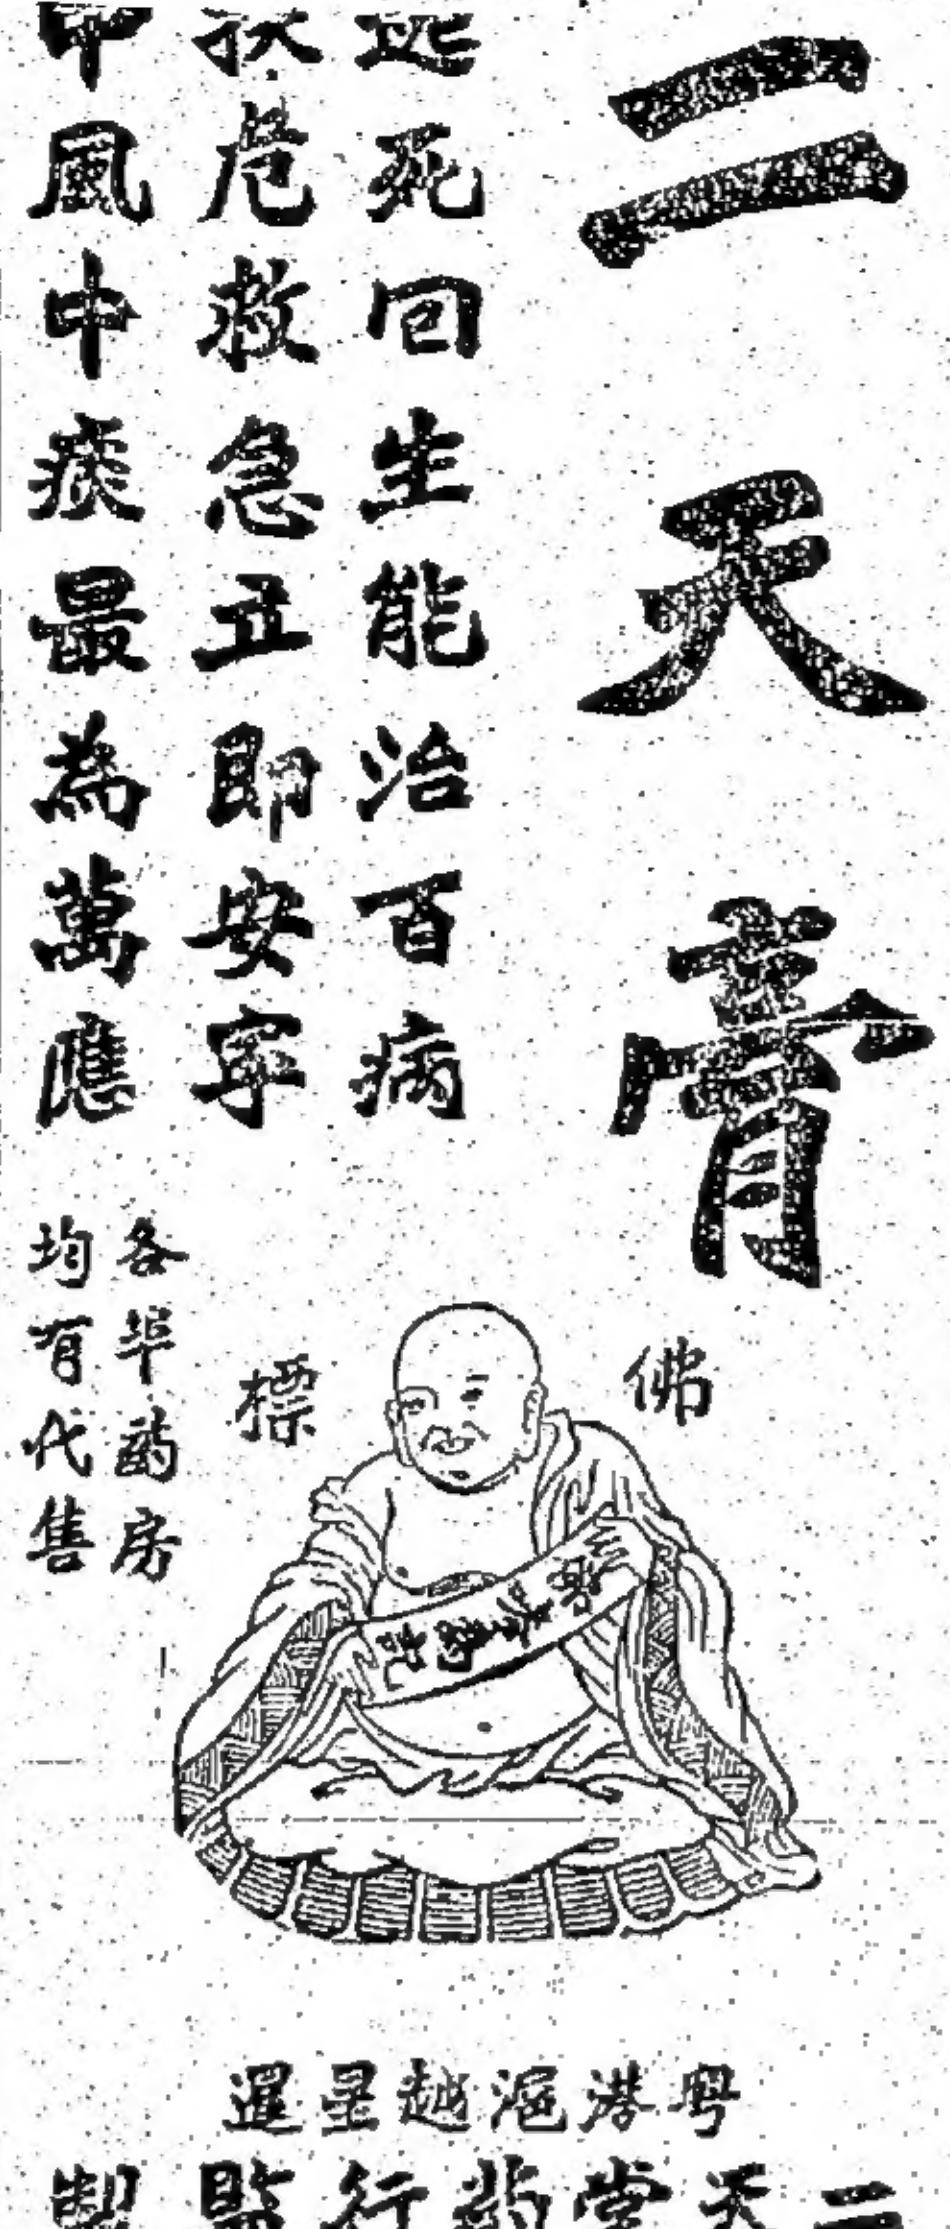 二天膏
起死回生能治百病
扶危救急立即安寧
中風中痰最為萬應
各埠葯房
均有代售
佛標
粵港滬越星暹
二天堂葯行監製